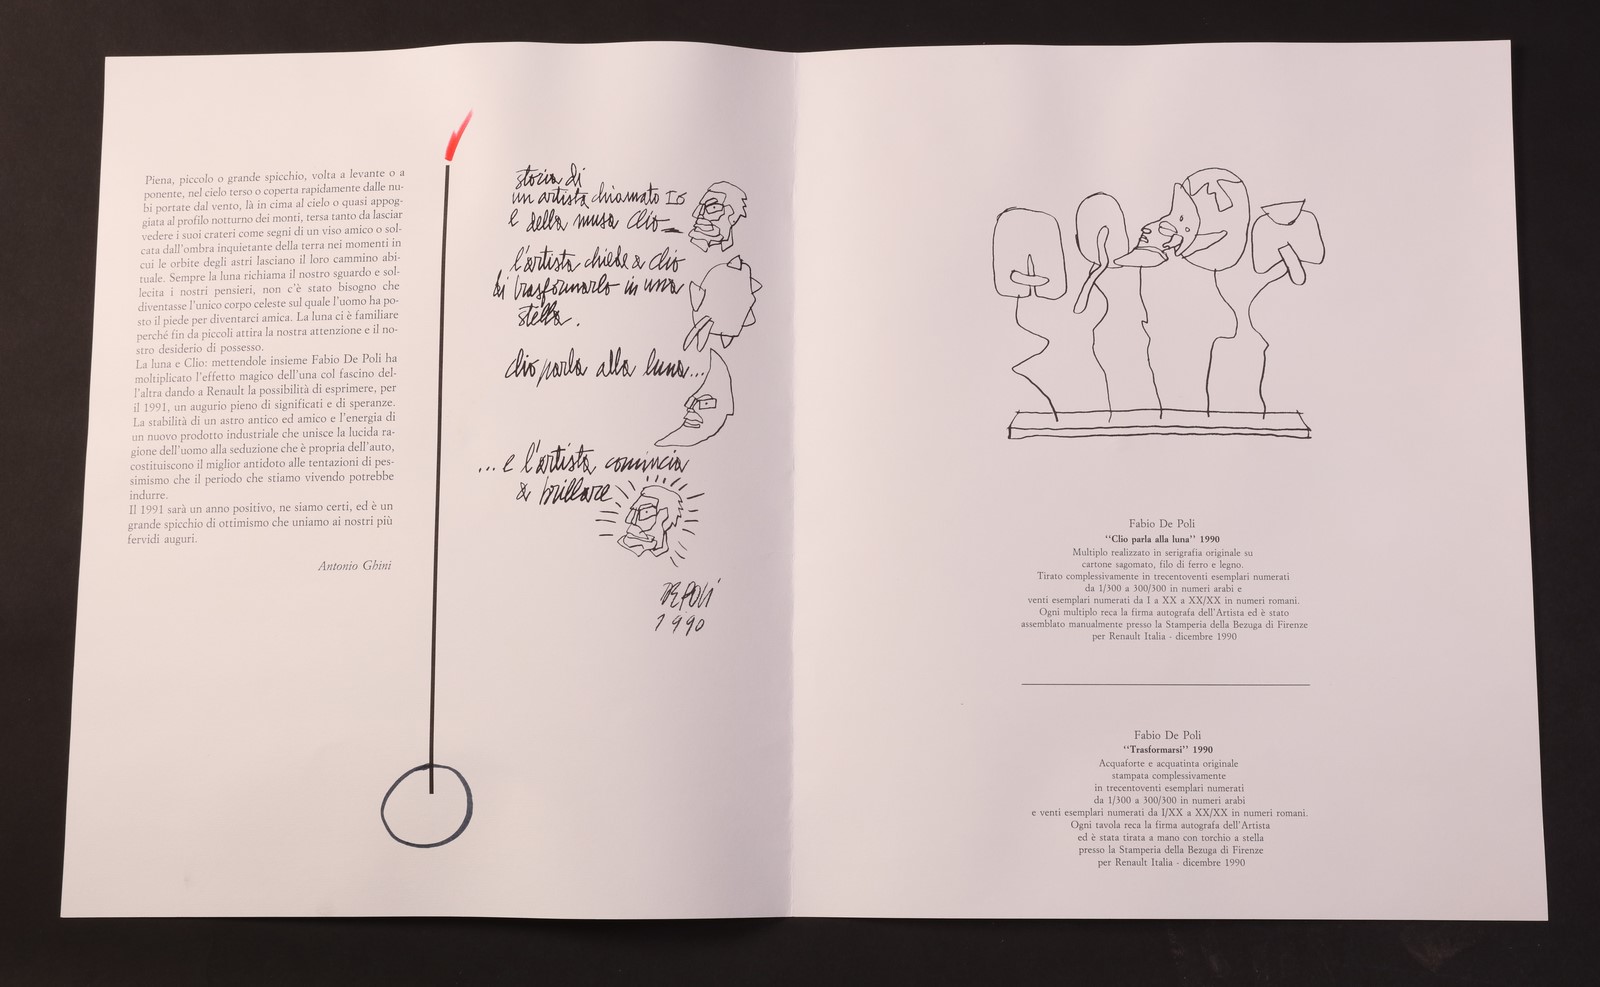 Piena, piccolo o grande spicchio, volta a levante o a
ponente, nel cielo terso o coperta rapidamente dalle nu-
bi portate dal vento, là in cima al cielo o quasi appog-
giata al profilo notturno dei monti, tersa tanto da lasciar
vedere i suoi crateri come segni di un viso amico o sol-
cata dall'ombra inquietante della terra nei momenti in
cui le orbite degli astri lasciano il loro cammino abi-
tuale. Sempre la luna richiama il nostro sguardo e sol-
lecita i nostri pensieri, non c'è stato bisogno che
diventasse l'unico corpo celeste sul quale l'uomo ha po-
sto il piede per diventarci amica. La luna ci è familiare
perché fin da piccoli attira la nostra attenzione e il no-
stro desiderio di possesso.
La luna e Clio: mettendole insieme Fabio De Poli ha
moltiplicato l'effetto magico dell'una col fascino del-
l'altra dando a Renault la possibilità di esprimere, per
il 1991, un augurio pieno di significati e di speranze.
La stabilità di un astro antico ed amico e l'energia di
un nuovo prodotto industriale che unisce la lucida ra-
gione dell'uomo alla seduzione che è propria dell'auto,
costituiscono il miglior antidoto alle tentazioni di pes-
simismo che il periodo che stiamo vivendo potrebbe
indurre.
Il 1991 sarà un anno positivo, ne siamo certi, ed è un
grande spicchio di ottimismo che uniamo ai nostri più
fervidi auguri.
Antonio Ghini
storia di
un artista chiamato IO
e della musa Clio
l'artista chiede a clio
di trasformarlo in una
stella.
clio parla alla luna...
... e l'artista comincia
a brillare
DE POLI
1990
Fabio De Poli
"Clio parla alla luna" 1990
Multiplo realizzato in serigrafia originale su
cartone sagomato, filo di ferro e legno.
Tirato complessivamente in trecentoventi esemplari numerati
da 1/300 a 300/300 in numeri arabi e
venti esemplari numerati da I a XX a XX/XX in numeri romani.
Ogni multiplo reca la firma autografa dell'Artista ed è stato
assemblato manualmente presso la Stamperia della Bezuga di Firenze
per Renault Italia - dicembre 1990
Fabio De Poli
"Trasformarsi" 1990
Acquaforte e acquatinta originale
stampata complessivamente
in trecentoventi esemplari numerati
da 1/300 a 300/300 in numeri arabi
e venti esemplari numerati da I/XX a XX/XX in numeri romani.
Ogni tavola reca la firma autografa dell'Artista
ed è stata tirata a mano con torchio a stella
presso la Stamperia della Bezuga di Firenze
per Renault Italia - dicembre 1990